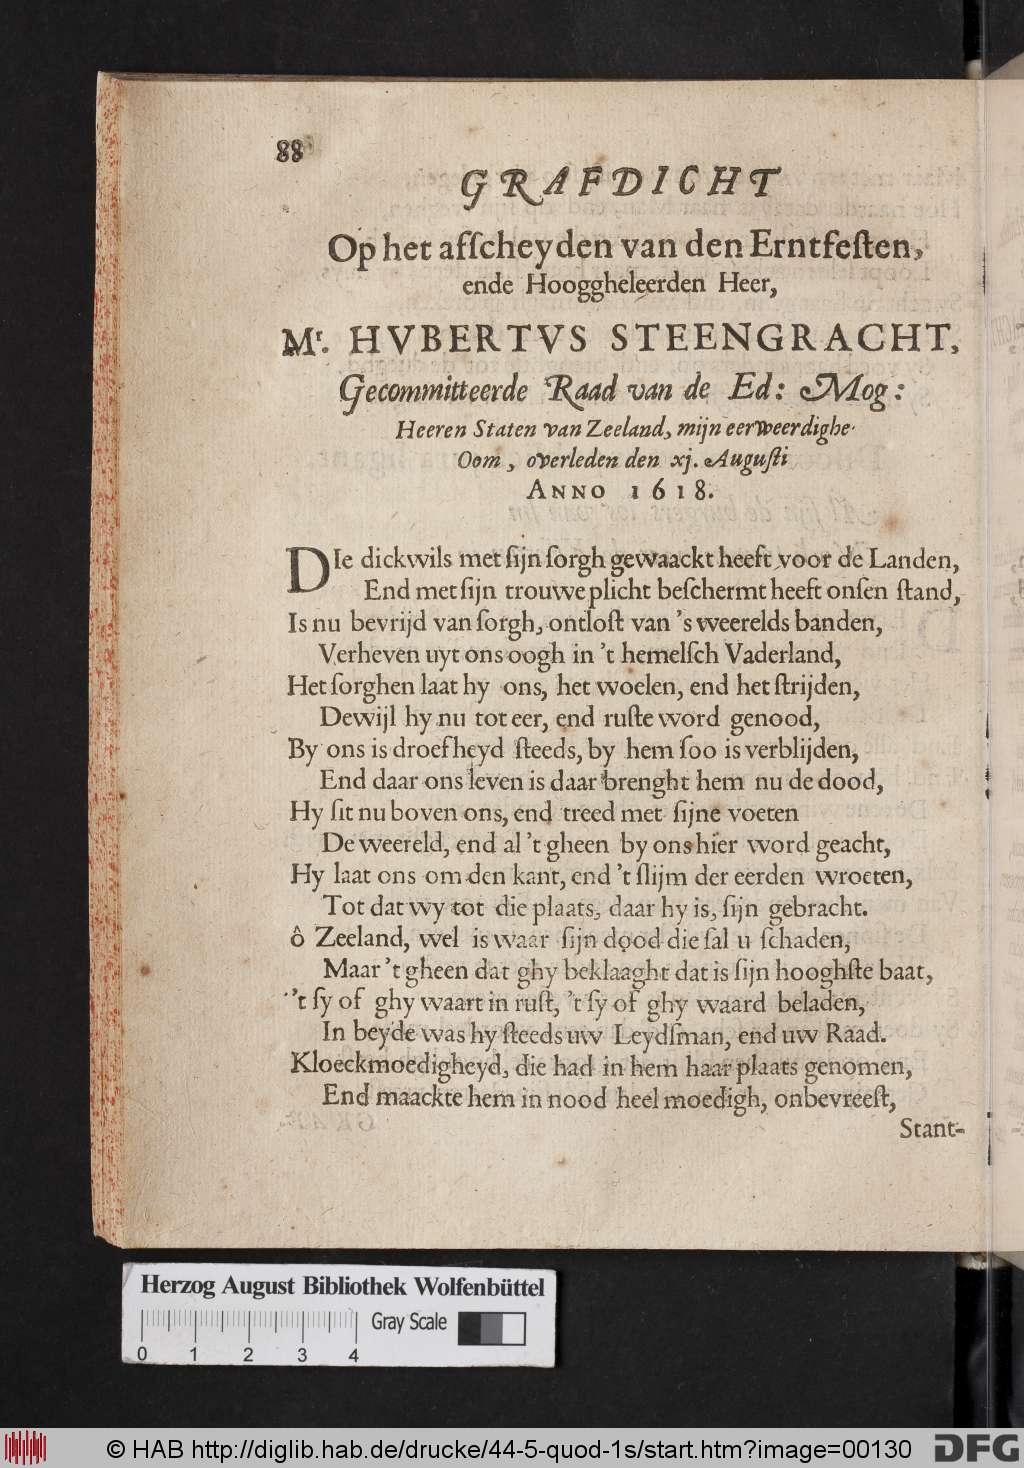 88
GRAFDICHT
Op het afſcheyden van den Erntfeſten,
ende Hooggheleerden Heer,
Mr. HVBERTVS STEENGRACHT,
Gecommitteerde Raad van de Ed: Mog:
Heeren Staten van Zeeland, mijn eerweerdighe
Oom, overleden den xj. Auguſti
ANNO 1618.
DIe dickwils met ſijn ſorgh gewaackt heeft voor de Landen,
End met ſijn trouwe plicht beſchermt heeft onſen ſtand,
Is nu bevrijd van ſorgh, ontloſt van 's weerelds banden,
Verheven uyt ons oogh in 't hemelſch Vaderland,
Het ſorghen laat hy ons, het woelen, end het ſtrijden,
Dewijl hy nu tot eer, end ruſte word genood,
By ons is droefheyd ſteeds, by hem ſoo is verblijden,
End daar ons leven is daar brenght hem nu de dood,
Hy ſit nu boven ons, end treed met ſijne voeten
De weereld, end al 't gheen by ons hier word geacht,
Hy laat ons om den kant, end 't ſlijm der eerden wroeten,
Tot dat wy tot die plaats, daar hy is, ſijn gebracht.
ô Zeeland, wel is waar ſijn dood die ſal u ſchaden,
Maar 't gheen dat ghy beklaaght dat is ſijn hooghſte baat,
't ſy of ghy waart in ruſt, 't ſy of ghy waard beladen,
In beyde was hy ſteeds uw Leydſman, end uw Raad.
Kloeckmoedigheyd, die had in hem haar plaats genomen,
End maackte hem in nood heel moedigh, onbevreeſt,
Stant-
Herzog August Bibliothek Wolfenbüttel
Gray Scale
0 1 2 3 4
© HAB http://diglib.hab.de/drucke/44-5-quod-1s/start.htm?image=00130
DFG